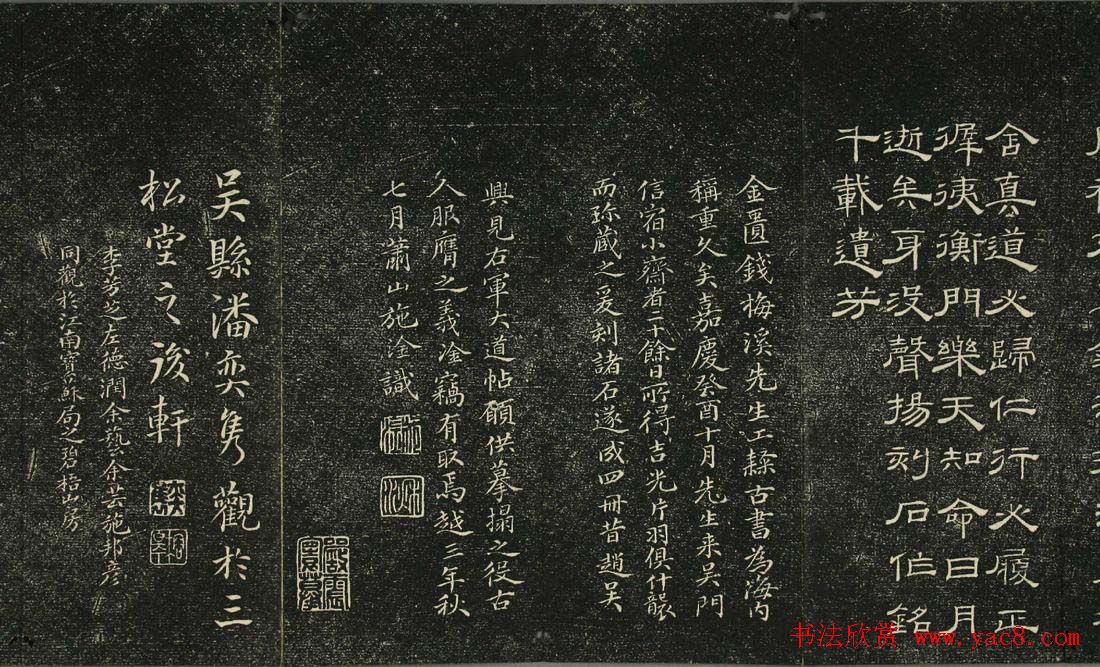 含真道必歸仁行必履正
徲侇衡門樂天知命日月
逝矣身没聲揚刻石作銘
千載遺芳
金匱錢梅溪先生工隸古書為海内
稱重久矣嘉慶癸酉十月先生来吳門
信宿小齋者二十餘日所得吉光片羽俱什襲
而珍蔵之爰刻諸石遂成四冊昔趙吳
興見右軍大道帖願供摹搨之役古
人服膺之義淦竊有取焉越三年秋
七月蕭山施淦識
吳縣潘奕雋觀於三
松堂之後軒
李芳芝左德潤余藝余芸施邦彦
同觀於江南寶蘇局之碧梧山房
书法欣赏 www.yac8.com